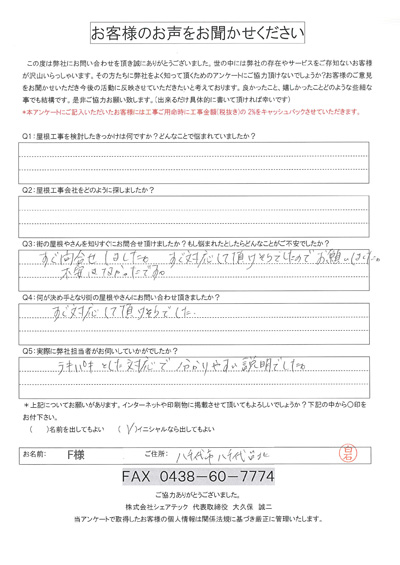 お客様のお声をお聞かせください
この度は弊社にお問い合わせを頂き誠にありがとうございました。世の中には弊社の存在やサービスをご存知ないお客様
が沢山いらっしゃいます。その方たちに弊社をよく知って頂くためのアンケートにご協力頂けないでしょうか?お客様のご意見
をお聞かせいただき今後の活動に反映させていただきたいと考えております。良かったこと、嬉しかったことどのような些細な
事でも結構です。是非ご協力お願い致します。(出来るだけ具体的に書いて頂ければ幸いです)
*本アンケートにご記入いただいたお客様には工事ご用命時に工事金額(税抜き)の2%をキャッシュバックさせていただきます。
Q1:屋根工事を検討したきっかけは何ですか?どんなことで悩まれていましたか?
Q2:屋根工事会社をどのように探しましたか?
Q3:街の屋根やさんを知りすぐにお問合せ頂けましたか?もし悩まれたとしたらどんなことがご不安でしたか?
すぐ問合せしました すぐ対応して頂けそうでしたのでお願いしました
不安はなかったです。
Q4:何が決め手となり街の屋根やさんにお問い合わせ頂きましたか?
すぐ対応して頂けそうでした.
Q5:実際に弊社担当者がお伺いしていかがでしたか?
テキパキとした対応で分かりやすい説明でした
*上記についてお願いがあります。インターネットや印刷物に掲載させて頂いてもよろしいでしょうか?下記の中から〇印を
お付け下さい。
( )名前を出してもよい (✓)イニシャルなら出してもよい
お名前: F様 ご住所: 八千代市八千代台北
白石
FAX 0438-60-7774
ご協力ありがとうございました。
株式会社シェアテック 代表取締役 大久保 誠二
当アンケートで取得したお客様の個人情報は関係法規に基づき厳正に管理いたします。